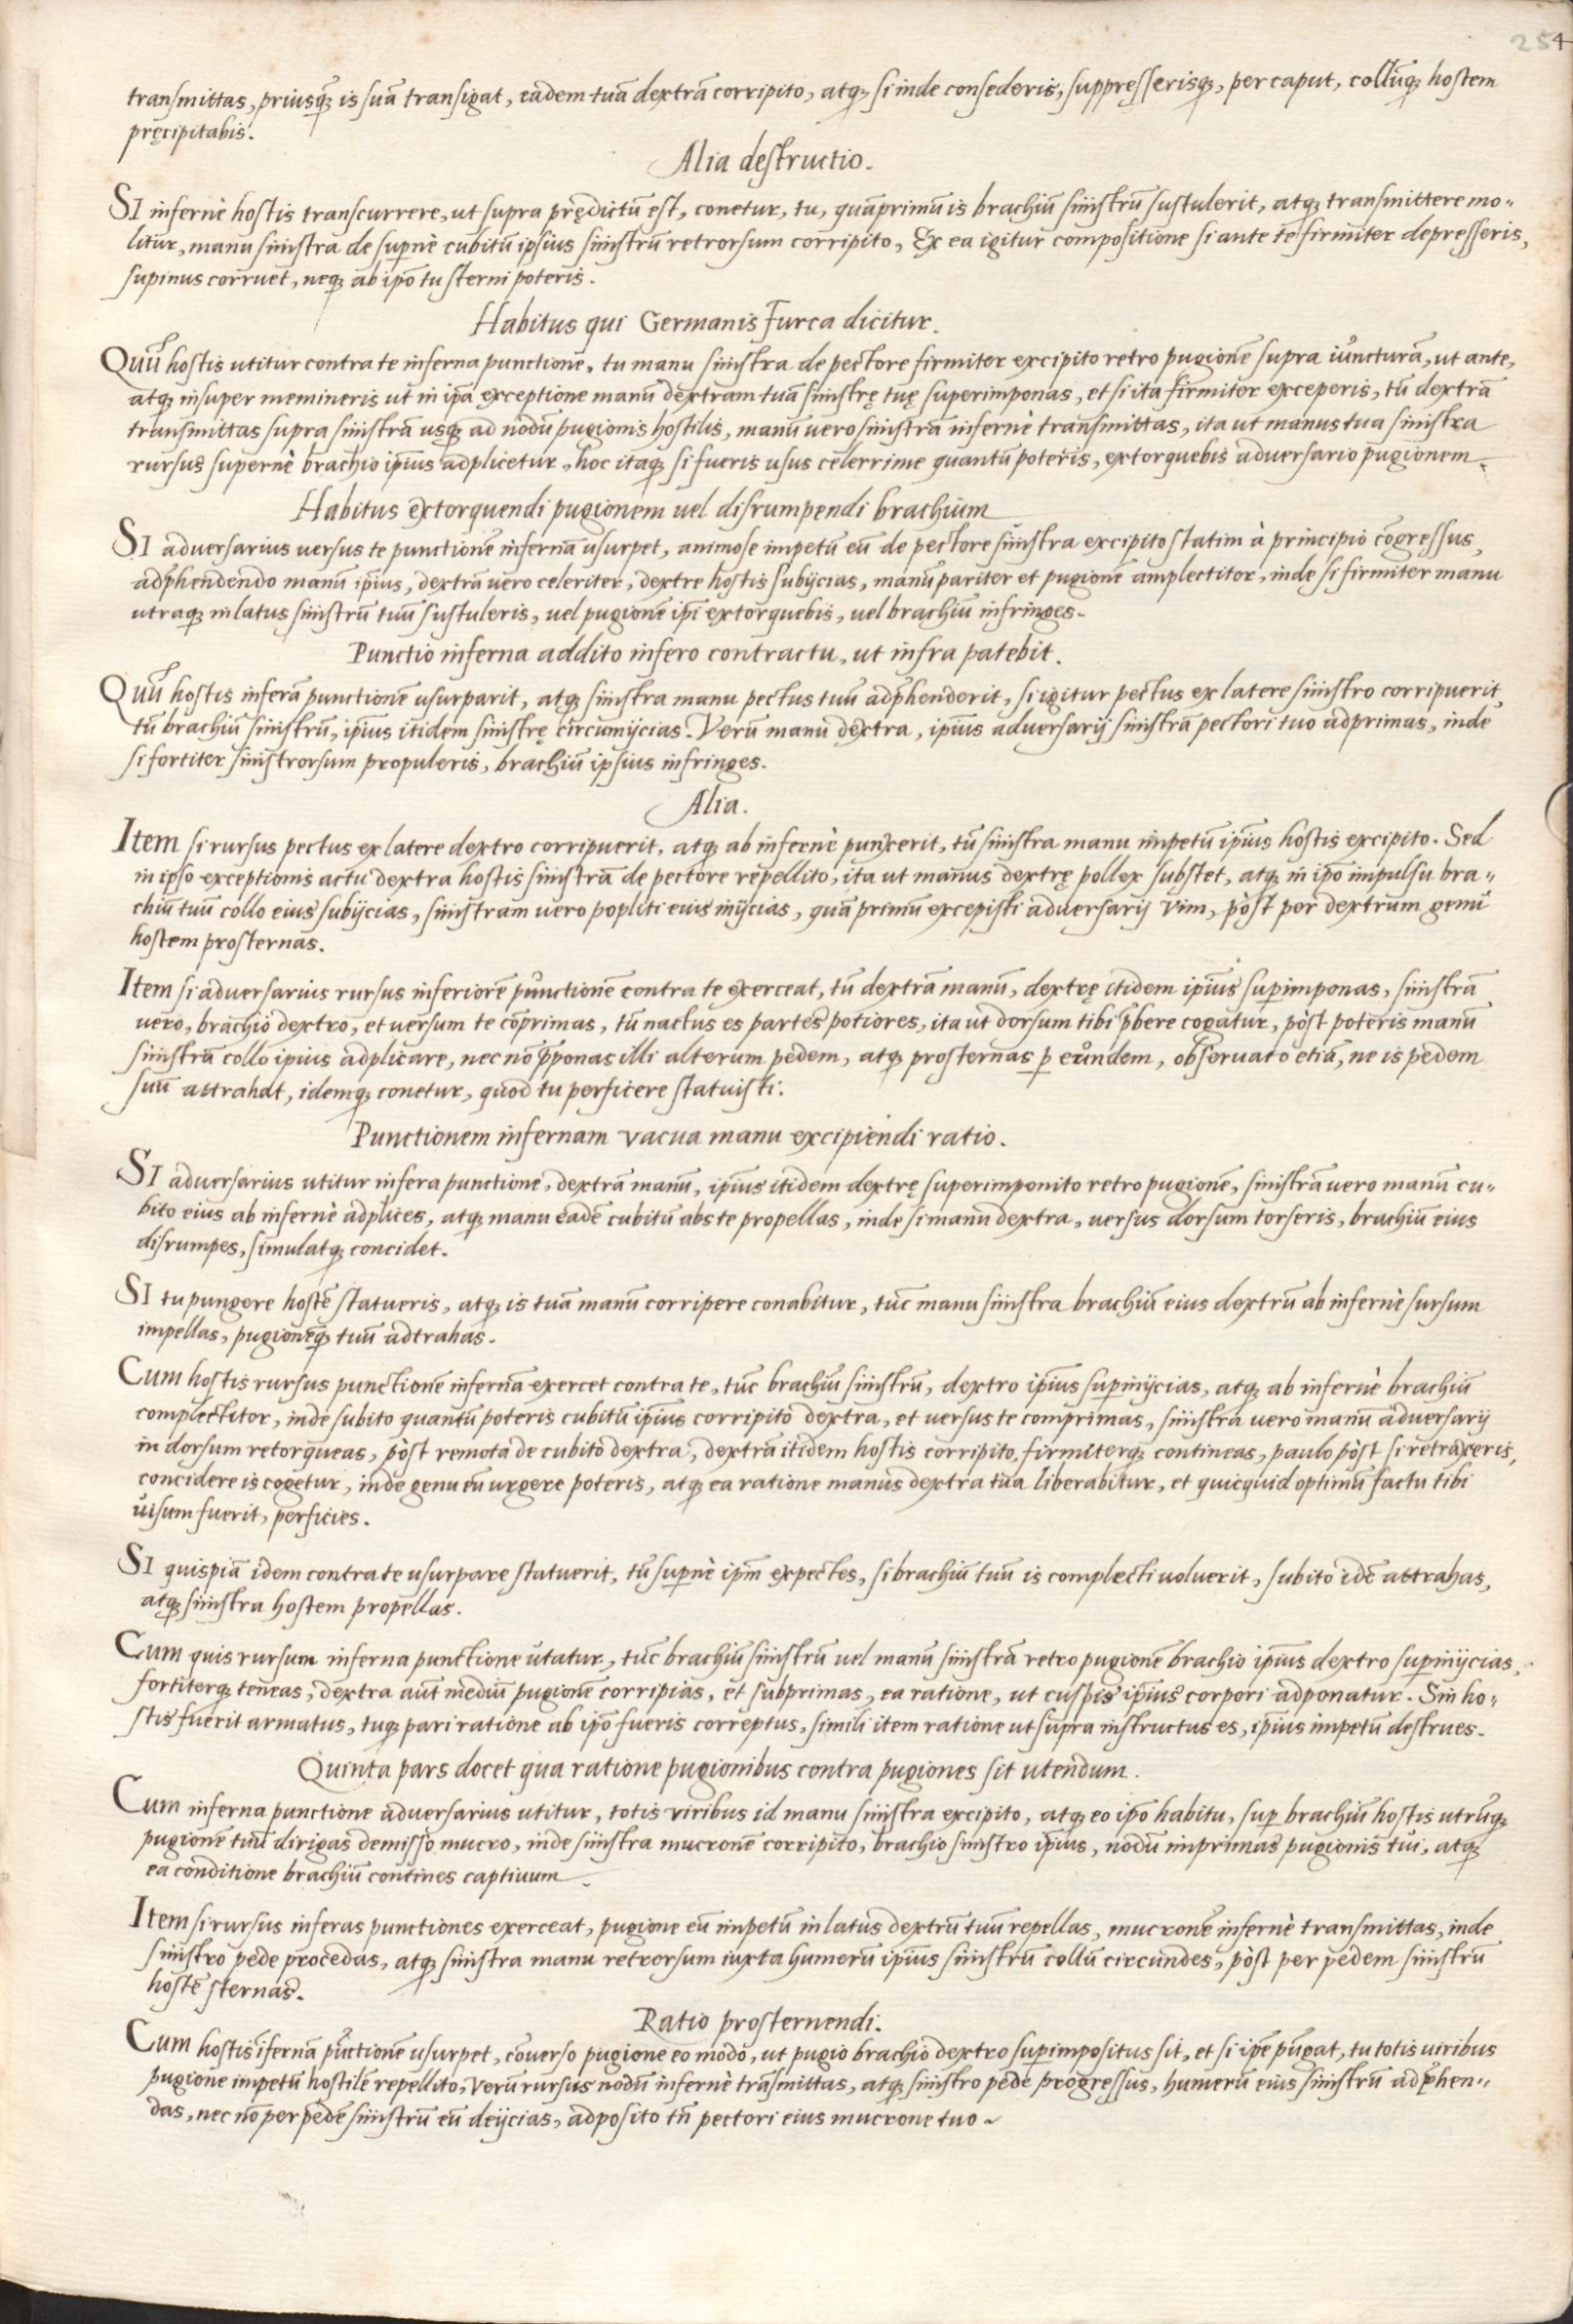 254
transmittas, priusq̃ꝫ is suã transigat, eadem tuã dextrã corripito, atqꝫ si inde consederis, suppresserisqꝫ, per caput, collũqꝫ hostem
pręcipitabis.
Alia destructio.
SI infernè hostis transcurrere, ut supra prędictũ est, conetur, tu, quãprimũ is brachiũ sinistrũ sustulerit, atqꝫ transmittere mo„
litur, manu sinistra de sup̱nè cubitũ ipsius sinistrũ retrorsum corripito, Ex ea igitur compositione si ante te firmiter depresseris,
supinus corruet, neqꝫ ab ip̃o tu sterni poteris.
Habitus qui Germanis Furca dicitur.
Quũ hostis utitur contra te inferna punctione, tu manu sinistra de pectore firmiter excipito retro pugionẽ supra iuncturã, ut ante,
atqꝫ insuper memineris ut in ip̃a exceptione manũ dextram tuã sinistrę tuę superimponas, et si ita firmiter exceperis, tũ dextrã
transmittas supra sinistrã usqꝫ ad nodũ pugionis hostilis, manũ vero sinistrã infernè transmittas, ita ut manus tua sinistra
rursus supernè brachio ip̃ius adplicetur, hoc itaqꝫ si fueris usus celerrime quantũ poteris, extorquebis adversario pugionem.
Habitus extorquendi pugionem vel disrumpendi brachium
SI adversarius versus te punctionẽ infernã usurpet, animose impetũ eũ de pectore sinistra excipito statim à principio cõgressus,
adp̃hendendo manũ ip̃ius, dextrã vero celeriter, dextre hostis subijcias, manũ pariter et pugionẽ amplectitor, inde si firmiter manu
utraqꝫ in latus sinistrũ tuũ sustuleris, vel pugionẽ ip̃i extorquebis, vel brachiũ infringes.
Punctio inferna addito infero contractu, ut infra patebit.
Quũ hostis inferã punctionẽ usurparit, atqꝫ sinistra manu pectus tuũ adp̃henderit, si igitur pectus ex latere sinistro corripuerit,
tũ brachiũ sinistrũ, ip̃ius itidem sinistrę circumijcias. Verũ manu dextra, ip̃ius adversarij sinistrã pectori tuo adprimas, inde
si fortiter sinistrorsum propuleris, brachiũ ipsius infringes.
Alia.
Item si rursus pectus ex latere dextro corripuerit, atqꝫ ab infernè punxerit, tũ sinistra manu impetũ ip̃ius hostis excipito. Sed
in ipso exceptionis actu dextra hostis sinistrã de pectore repellito, ita ut manus dextrę pollex substet, atqꝫ in ip̃o impulsu bra„
chiũ tuũ collo eius subijcias, sinistram vero popliti eius inijcias, quã primũ excepisti adversarij vim, pòst per dextrum genu
hostem prosternas.
Item si adversarius rursus inferiorẽ punctionẽ contra te exerceat, tũ dextrã manũ, dextrę itidem ip̃ius sup̱imponas, sinistrã
vero, brachio dextro, et versum te cõprimas, tũ nactus es partes potiores, ita ut dorsum tibi p̃bere cogatur, pòst poteris manũ
sinistrã collo ipius adplicare, nec nõ p̃ponas illi alterum pedem, atqꝫ prosternas p̱ eundem, observato etiã, ne is pedem
suũ attrahat, idemqꝫ conetur, quod tu perficere statuisti.
Punctionem infernam vacua manu excipiendi ratio.
SI adversarius utitur infera punctione, dextrã manũ, ip̃ius itidem dextrę superimponito retro pugionẽ, sinistrã vero manũ cu„
bito eius ab infernè adplices, atqꝫ manu eadẽ cubitũ abs te propellas, inde si manu dextra, versus dorsum torseris, brachiũ eius
disrumpes, simulatqꝫ concidet.
SI tu pungere hostẽ statueris, atqꝫ is tuã manũ corripere conabitur, tũc manu sinistra brachiũ eius dextrũ ab infernè sursum
impellas, pugionẽqꝫ tuũ adtrahas.
Cum hostis rursus punctionẽ infernã exercet contra te, tũc brachiũ sinistrũ, dextro ip̃ius sup̱inijcias, atqꝫ ab infernè brachiũ
complectitor, inde subito quantũ poteris cubitũ ip̃ius corripito dextra, et versus te comprimas, sinistra vero manũ adversarij
in dorsum retorqueas, pòst remota de cubito dextra, dextrã itidem hostis corripito, firmiterqꝫ contineas, paulo pòst si retraxeris,
concidere is cogetur, inde genu eũ urgere poteris, atqꝫ ea ratione manus dextra tua liberabitur, et quicquid optimũ factu tibi
visum fuerit, perficies.
SI quispiã idem contra te usurpare statuerit, tũ sup̱nè ip̃m expectes, si brachiũ tuũ is complecti voluerit, subito idẽ attrahas,
atqꝫ sinistra hostem propellas.
Cum quis rursum inferna punctione utatur, tũc brachiũ sinistrũ vel manũ sinistrã retro pugionẽ brachio ip̃ius dextro sup̱inijcias,
fortiterqꝫ teneas, dextra aũt mediũ pugionẽ corripias, et subprimas, ea ratione, ut cuspis ip̃ius corpori adponatur. Sin ho„
stis fuerit armatus, tuqꝫ pari ratione ab ip̃o fueris correptus, simili item ratione ut supra instructus es, ip̃ius impetũ destrues.
Quinta pars docet qua ratione pugionibus contra pugiones sit utendum.
Cum inferna punctione adversarius utitur, totis viribus id manu sinistra excipito, atqꝫ eo ip̃o habitu, sup̱ brachiũ hostis utrũqꝫ
pugionẽ tuũ dirigas demisso mucro, inde sinistra mucronẽ corripito, brachio sinistro ip̃ius, nodũ inprimas pugionis tui, atqꝫ
ea conditione brachiũ contines captivum.
Item si rursus inferas punctiones exerceat, pugione eũ impetũ in latus dextrũ tuũ repellas, mucronẽ infernè transmittas, inde
sinistro pede procedas, atqꝫ sinistra manu retrorsum iuxta humerũ ipsius sinistrũ collũ circundes, pòst per pedem sinistrũ
hostẽ sternas.
Ratio prosternendi.
Cum hostis ĩfernã pũctionẽ usurpet, cõverso pugione eo modo, ut pugio brachio dextro sup̱impositus sit, et si ip̃e pũgat, tu totis viribus
pugione impetũ hostilẽ repellito, Verũ rursus nodũ infernè trãsmittas, atqꝫ sinistro pede progressus, humerũ eius sinistrũ adp̃hen„
das, nec nõ per pedẽ sinistrũ eũ deijcias, adposito tñ pectori eius mucrone tuo~